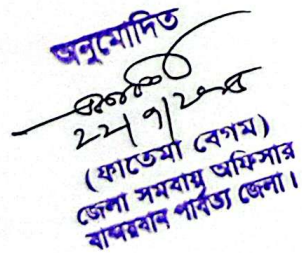 অনুমোদিত
(ফাতেমা বেগম)
জেলা সমবায় অফিসার
বান্দরবান পার্বত্য জেলা।